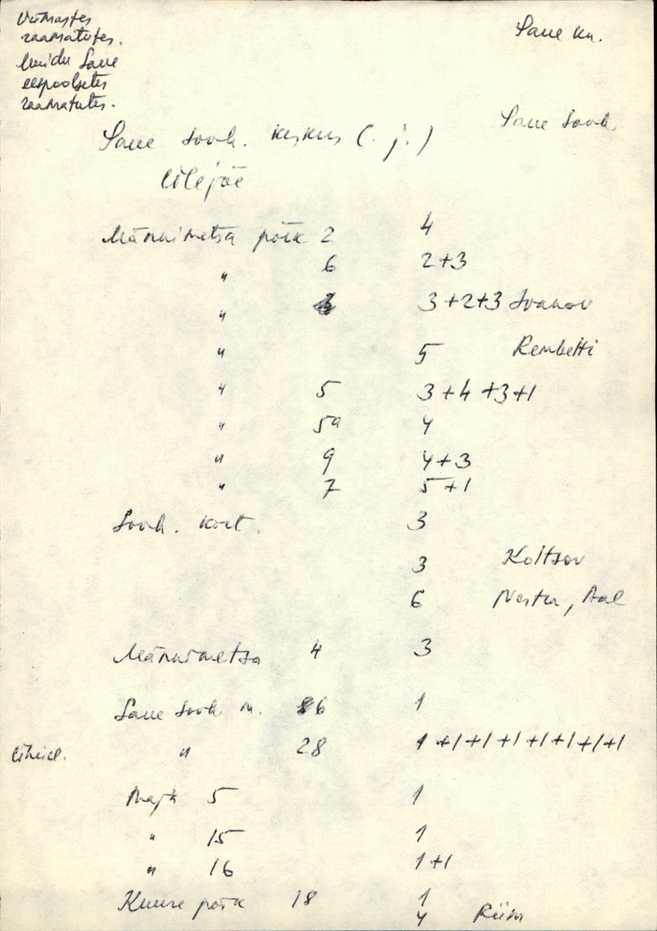 Viimastes
raamatutes.
Muidu Saue
eespoolsetes
raamatutes.
Saue kn.
Saue sovh.
Saue sovh. keskus (. j.)
Ülejõe
Männimetsa põik 2 4
" 6 2+3
" 3 3+2+3 Ivanov
" 5 Rembelti
" 5 3+4+3+1
" 5a 4
" 9 4+3
" 7 5+1
Sovh. kort. 3
3 Koltsov
6
Männimetsa 4 3
Saue sovh. m. 6 1
" 28 1+1+1+1+1+1+1+1
Maja 5 1
" 15 1
" 16 1+1
Kuuse põik 18 1
4